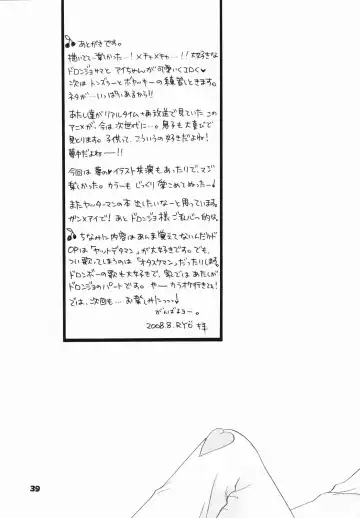 あとがきです。
描いてて…楽しかった…!メチャメチャ…!!大好きな
ドロンジョサマと アイちゃんが可愛くエロく♥
次は トンズラーと ボヤッキーの 練習しときます。
ネタが…いっぱいあるから!!
あたし達がリアルタイム+再放送で見ていた この
アニメが、今は次世代に…。息子も大喜びで
見とります。子供って、こういうの好きだよね!
夢中だよねー!!
今回は 夢の♥イラスト共演もあったりで、マジ
楽しかった。カラーも じっくり 堂こめてぬったー!
また ヤッターマンの本 出したいなーと思っています。
ガン×アイで! あと ドロンジョ様 ご乱心的な。
ちなみに内容は あんま覚えてないんだケド
OPは「ヤットデタマン」が大好きです。でも、
つい歌ってしまうのは「オタスケマン」だったりしまる
ドロンボーの歌も大好きで、家では あたしが
ドロンジョのパートです。やー カラオケ行きてえ!
では、次回も… お楽しみにっっっ
がんばるよー。
2008.8.RYÖ 拝
39